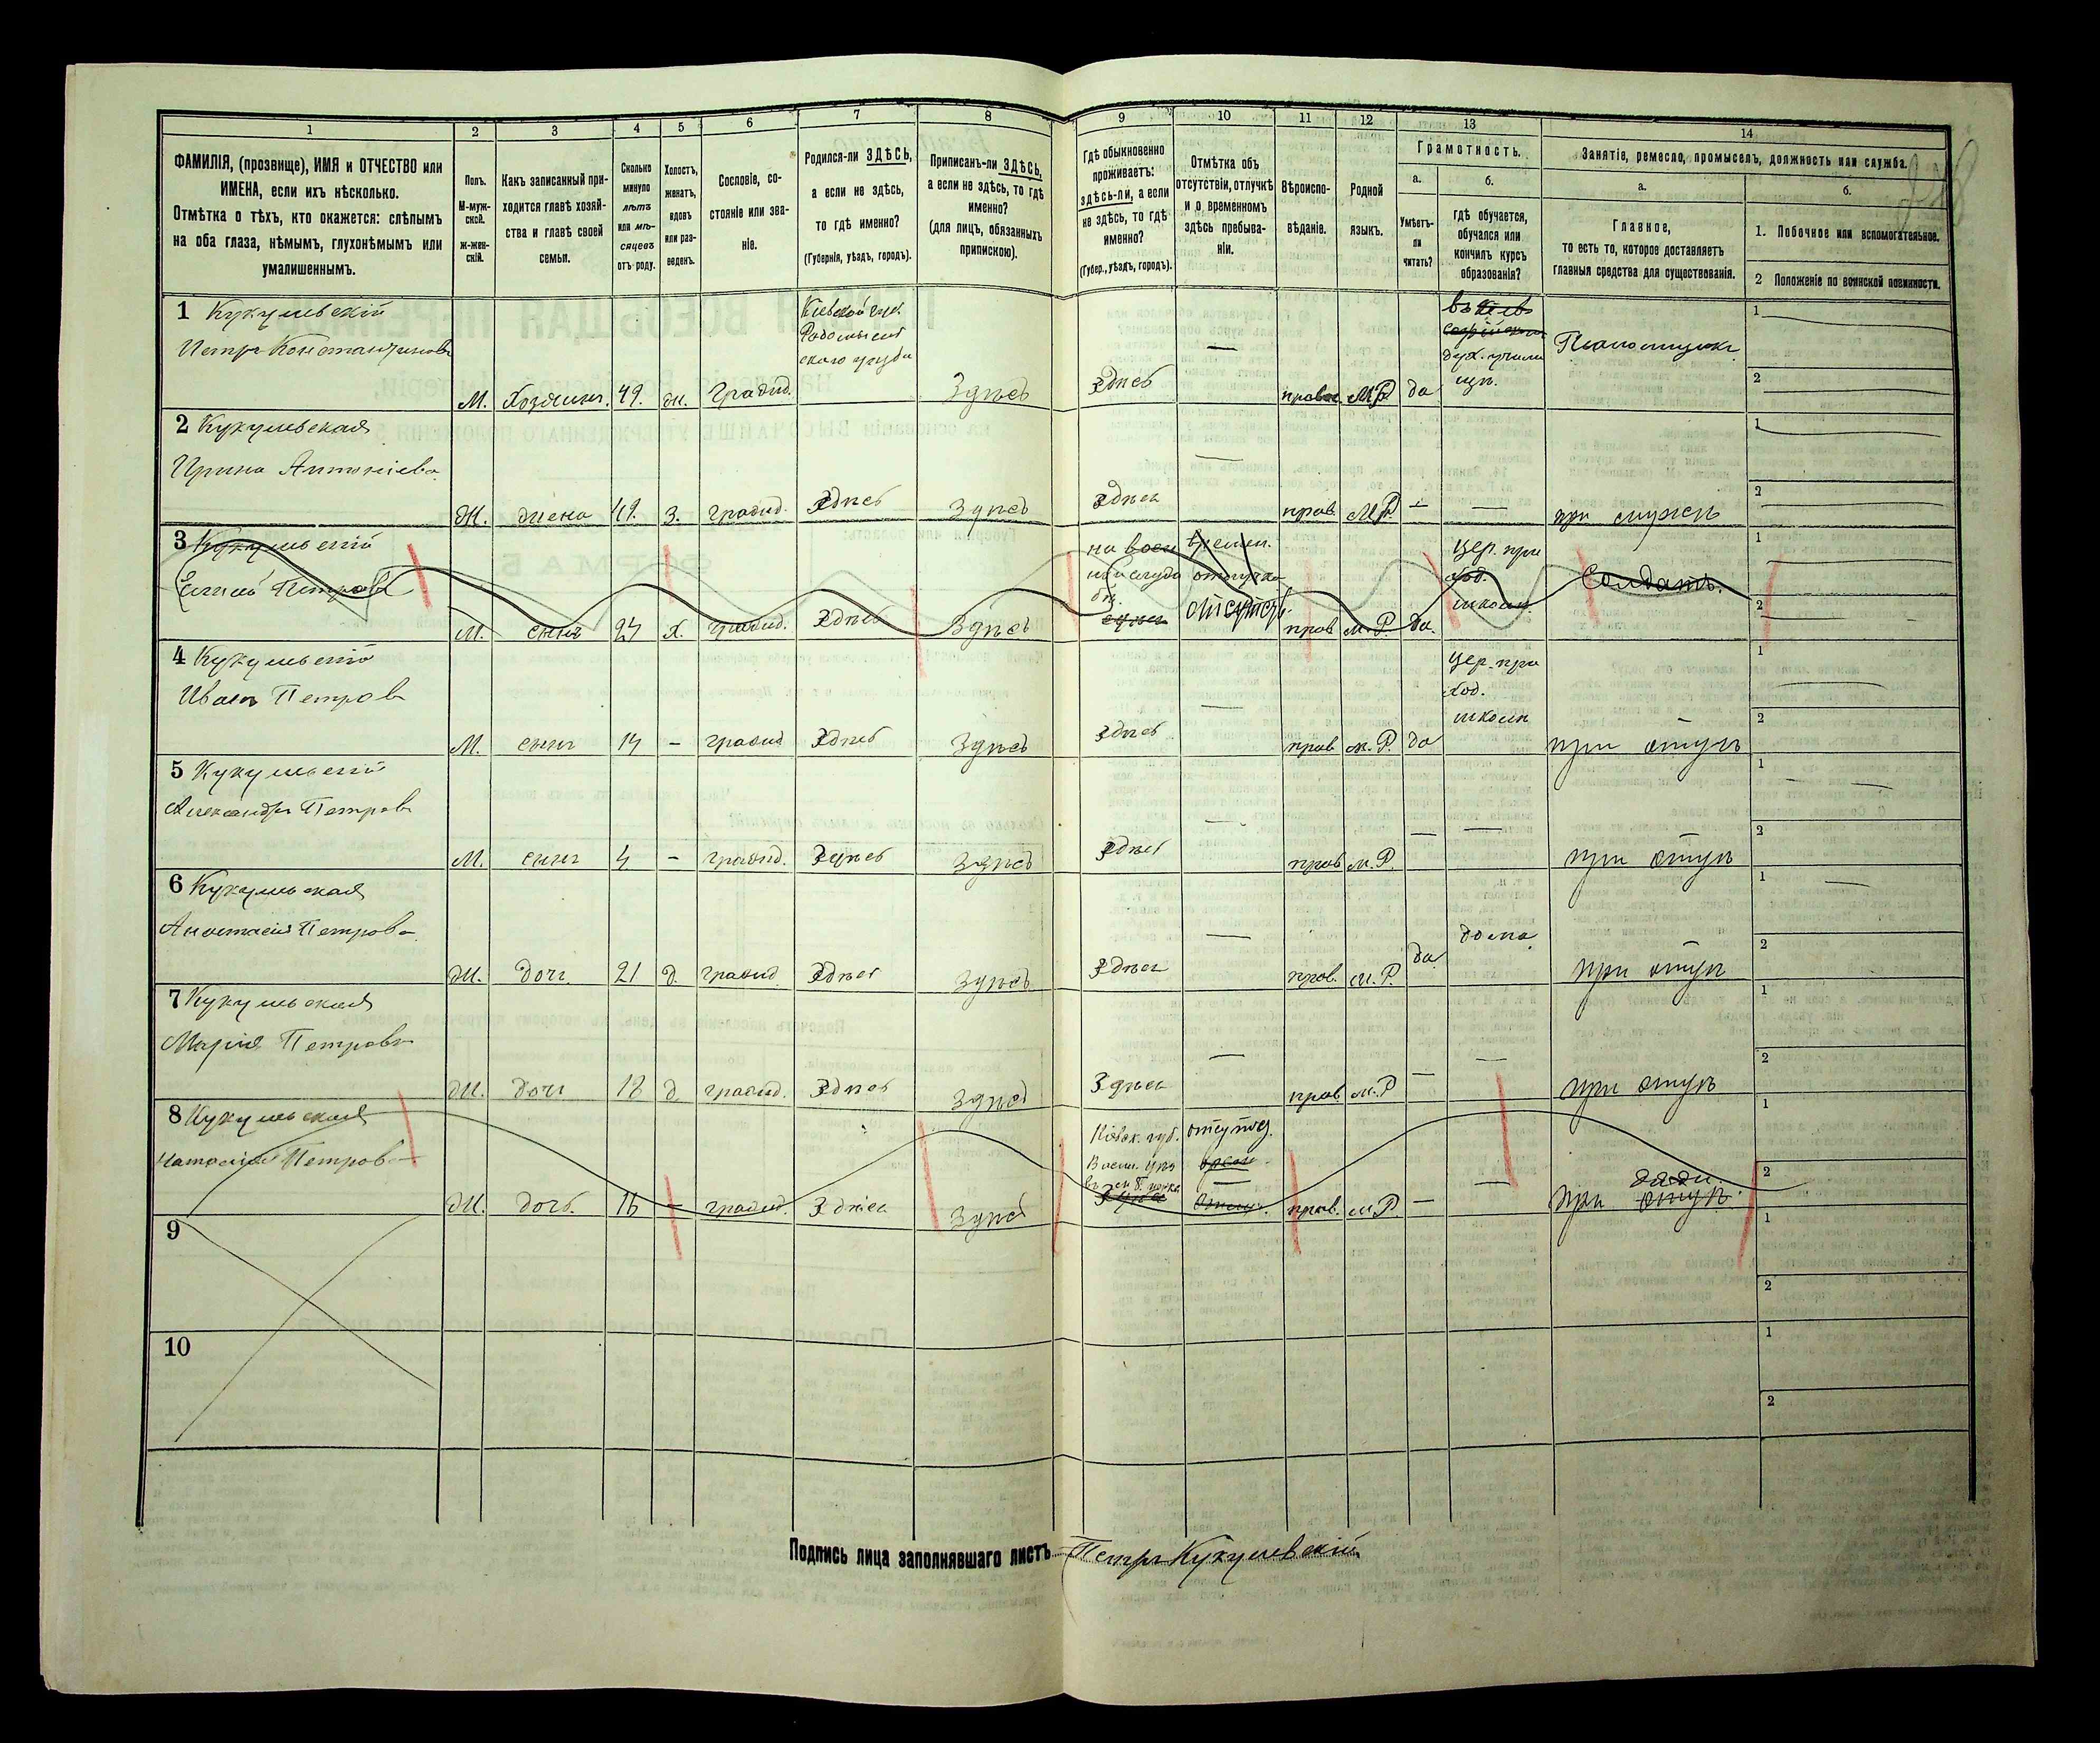 1
2
3
4
5
6
7
8
9
10
11
12
13
14
ФАМИЛІЯ, (прозвище), ИМЯ и ОТЧЕСТВО или
ИМЕНА, если ихъ нѣсколько.
Отмѣтка о тѣхъ, кто окажется: слѣпымъ
на оба глаза, нѣмымъ, глухонѣмымъ или
умалишеннымъ.
Полъ.
М-муж-
ской.
ж-жен-
скій.
Какъ записанный при-
ходится главѣ хозяй-
ства и главѣ своей
семьи.
Сколько
минуло
лѣтъ
или мѣ-
сяцевъ
отъ роду.
Холостъ,
женатъ,
вдовъ
или раз-
веденъ.
Сословіе, со-
стояніе или зва-
ніе.
Родился-ли ЗДѢСЬ,
а если не здѣсь,
то гдѣ именно?
(Губернія, уѣздъ, городъ).
Приписанъ-ли ЗДѢСЬ,
а если не здѣсь, то гдѣ
именно?
(для лицъ, обязанныхъ
припискою).
Гдѣ обыкновенно
проживаетъ:
здѣсь-ли, а если
не здѣсь, то гдѣ
именно?
(Губер., уѣздъ, городъ).
Отмѣтка объ
отсутствіи, отлучкѣ
и о временномъ
здѣсь пребыва-
ніи.
Вѣроиспо-
вѣданіе.
Родной
языкъ.
Грамотность.
а.
Умѣетъ-
ли
читать?
б.
гдѣ обучается,
обучался или
кончилъ курсъ
образованія?
Занятіе, ремесло, промыселъ, должность или служба.
а.
Главное,
то есть то, которое доставляетъ
главныя средства для существованія.
б.
1. Побочное или вспомогательное.
2 Положеніе по воинской повинности.
1 Кукульскій
Петръ Константиновъ
М. Хозяинъ. 49. ж.
Кіевской губ.
Радомысль
скаго уѣзда
Здѣсь
Здѣсь
—
М.Р. да
дух. учили
щѣ.
1
2
2 Кукульская
Ирина Антоніева
Ж. жена 49. З. Здѣсь Здѣсь
—
прав. М.Р. —
—
1
2
3 Кукульскій
Петровъ
М. сынъ 27 Х. Здѣсь Здѣсь
времен.
отлучка
отсутств.
прав. М.Р. да.
Цер. при
ход.
школа
Солдатъ.
1
2
4 Кукульскій
Иванъ Петровъ
М. сынъ 14 — Здѣсь Здѣсь
Здѣсь
—
прав. М.Р. да
Цер. при
ход.
школа
при отцѣ
1
2
5 Кукульскій
Александръ Петровъ
М. сынъ 4 — Здѣсь Здѣсь
Здѣсь
—
прав. М.Р.
—
—
при отцѣ
1
2
6 Кукульская
Анастасія Петрова
Ж. дочь 21 д. Здѣсь Здѣсь
Здѣсь
—
прав. М.Р.
да
дома
при отцѣ
1
2
7 Кукульская
Марія Петрова
Ж. дочь 18 д. Здѣсь Здѣсь
Здѣсь
—
прав. М.Р. —
—
при отцѣ
1
2
8 Кукульская
Петрова
Ж. дочь 16 — Здѣсь Здѣсь
Кіевск. губ.
прав. М.Р. —
—
при дяди.
1
2
9
1
2
10
1
2
Подпись лица заполнявшаго листъ Петръ Кукульскій